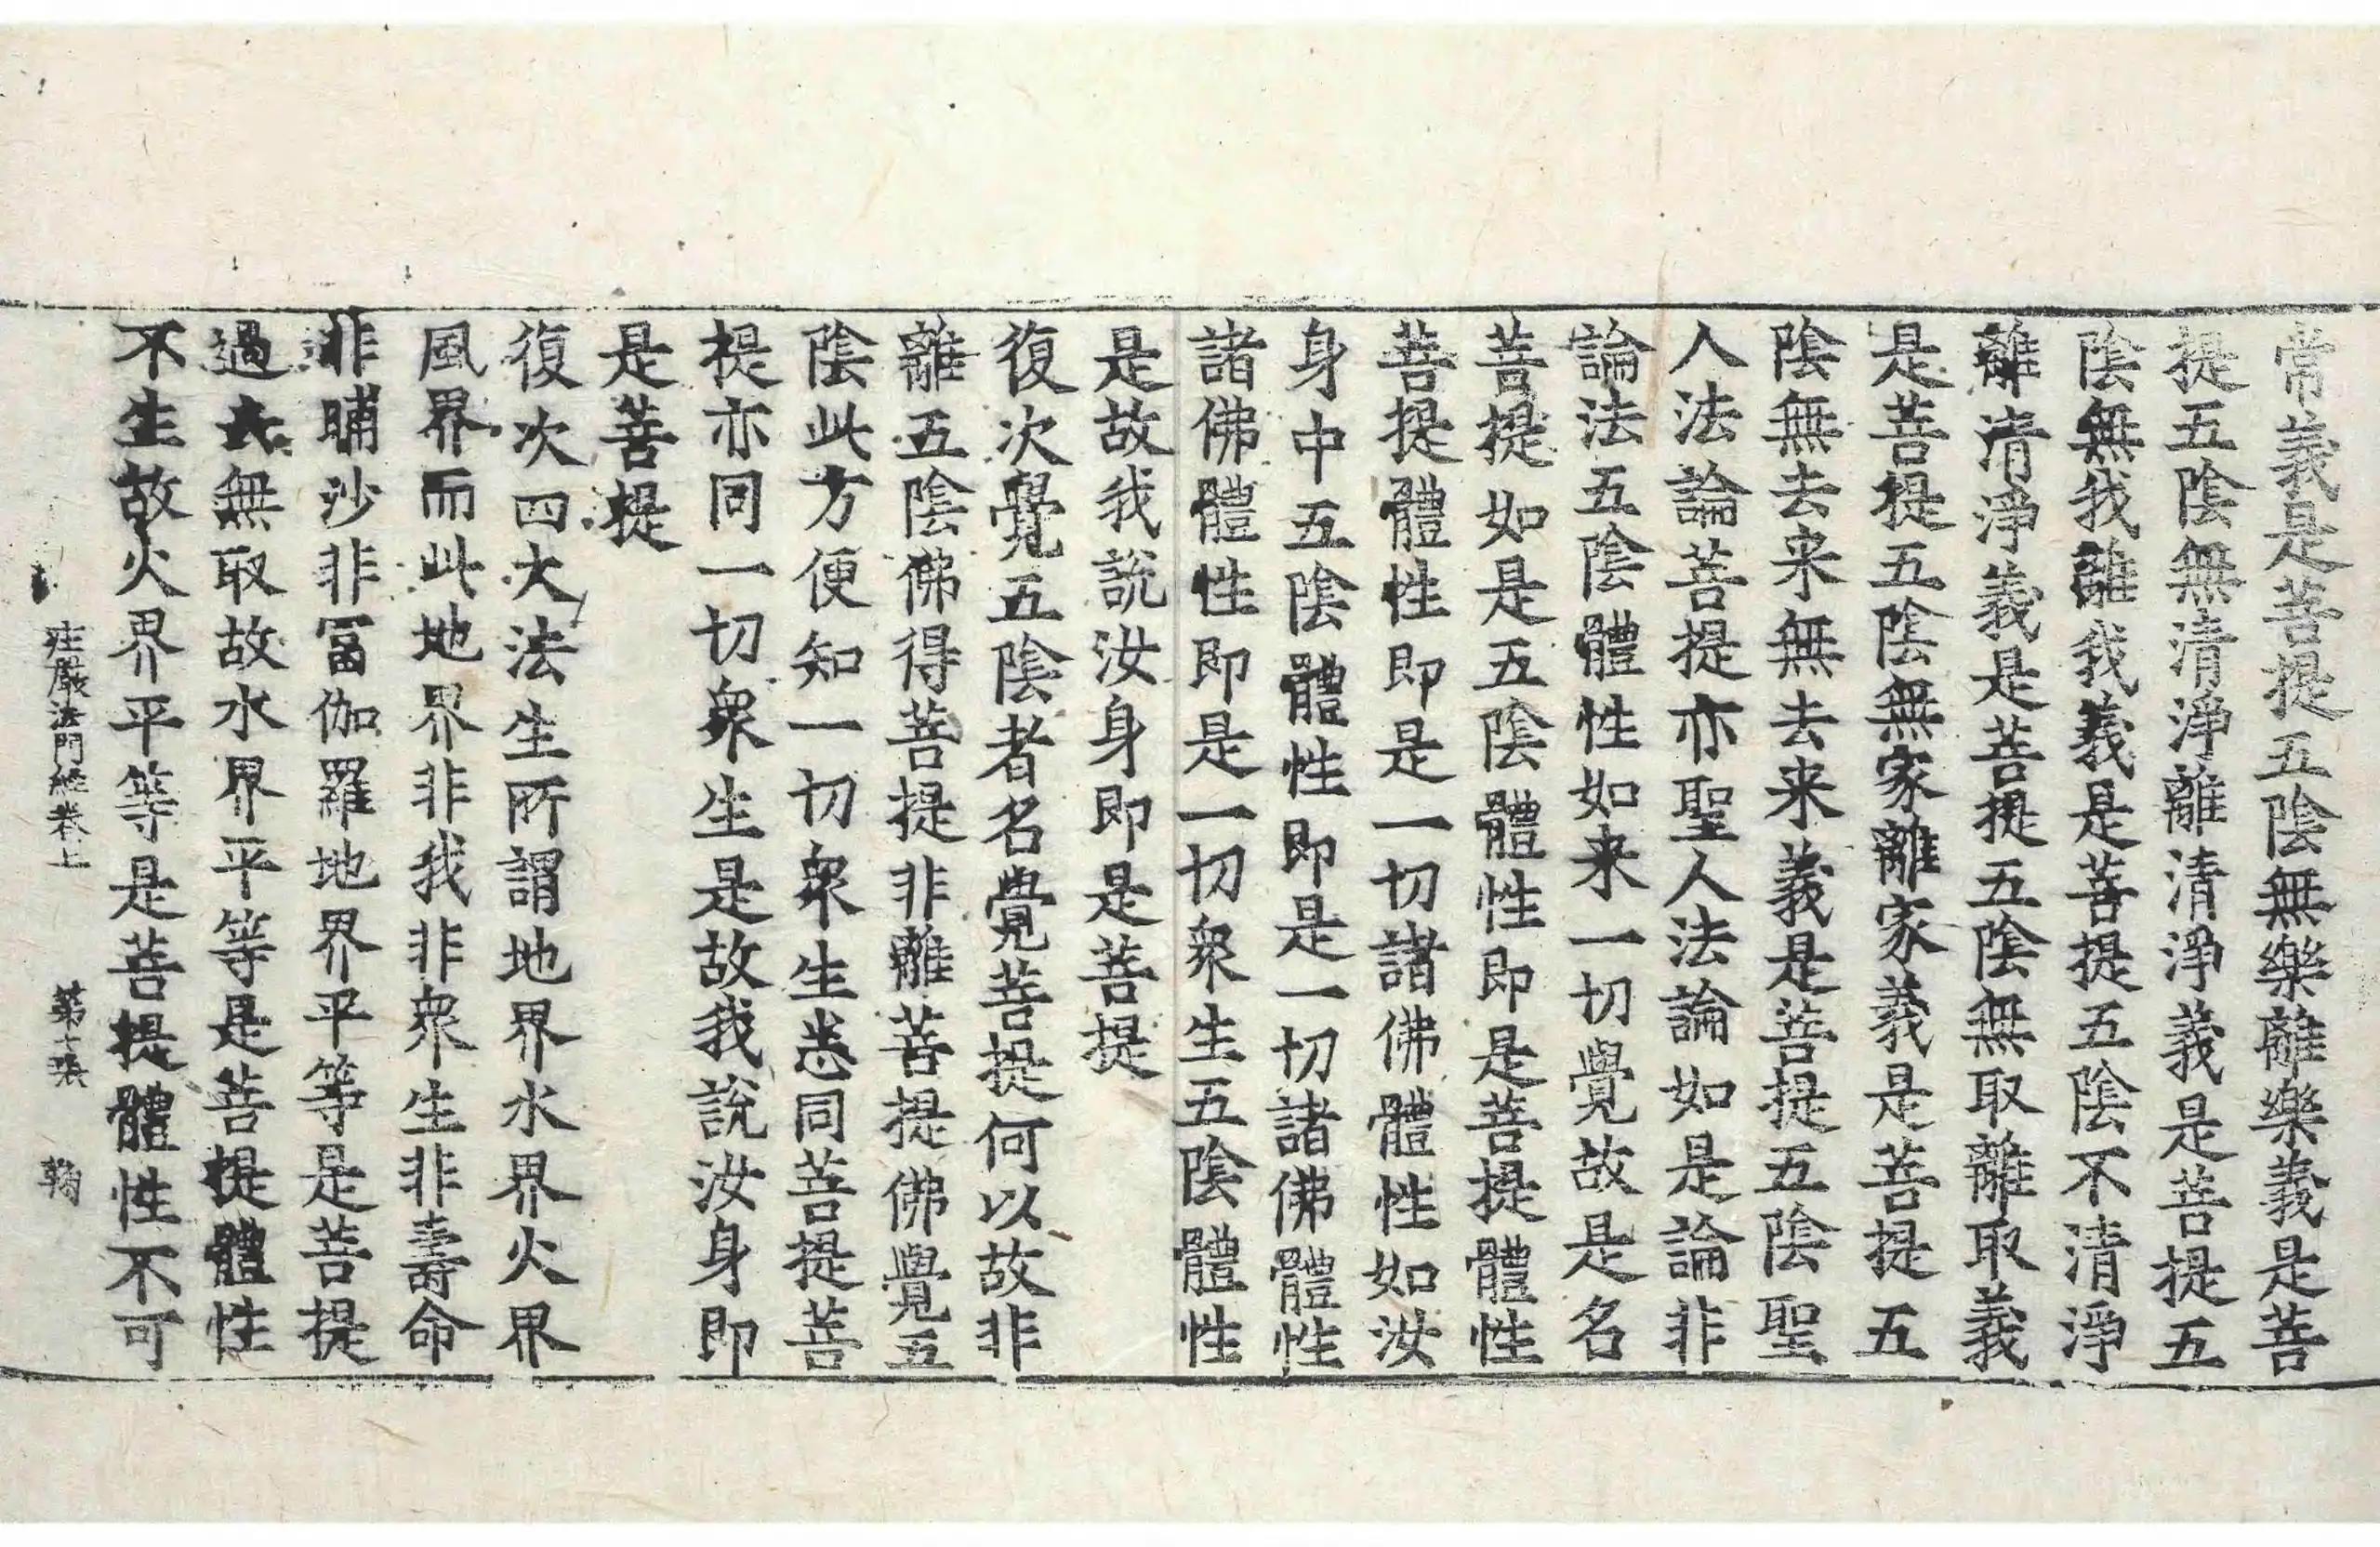 常義是菩提五陰無樂離樂義是菩
提五陰無清淨離清淨義是菩提五
陰無我離我義是菩提五陰不清淨
離清淨義是菩提五陰無取離取義
是菩提五陰無家離家義是菩提五
陰無去来無去来義是菩提五陰聖
人法論菩提亦聖人法論如是論非
論法五陰體性如来一切覺故是名
菩提如是五陰體性即是菩提體性
菩提體性即是一切諸佛體性如汝
身中五陰體性即是一切諸佛體性
諸佛體性即是一切衆生五陰體性
是故我說汝身即是菩提
復次覺五陰者名覺菩提何以故非
離五陰佛得菩提非離菩提佛覺五
陰此方便知一切衆生悉同菩提菩
提亦同一切衆生是故我說汝身即
是菩提
復次四大法生所謂地界水界火界
風界而此地界非我非衆生非壽命
非晡沙非富伽羅地界平等是菩提
過去無取故水界平等是菩提體性
不生故火界平等是菩提體性不可
庄嚴法門經卷上 第七張 鞠